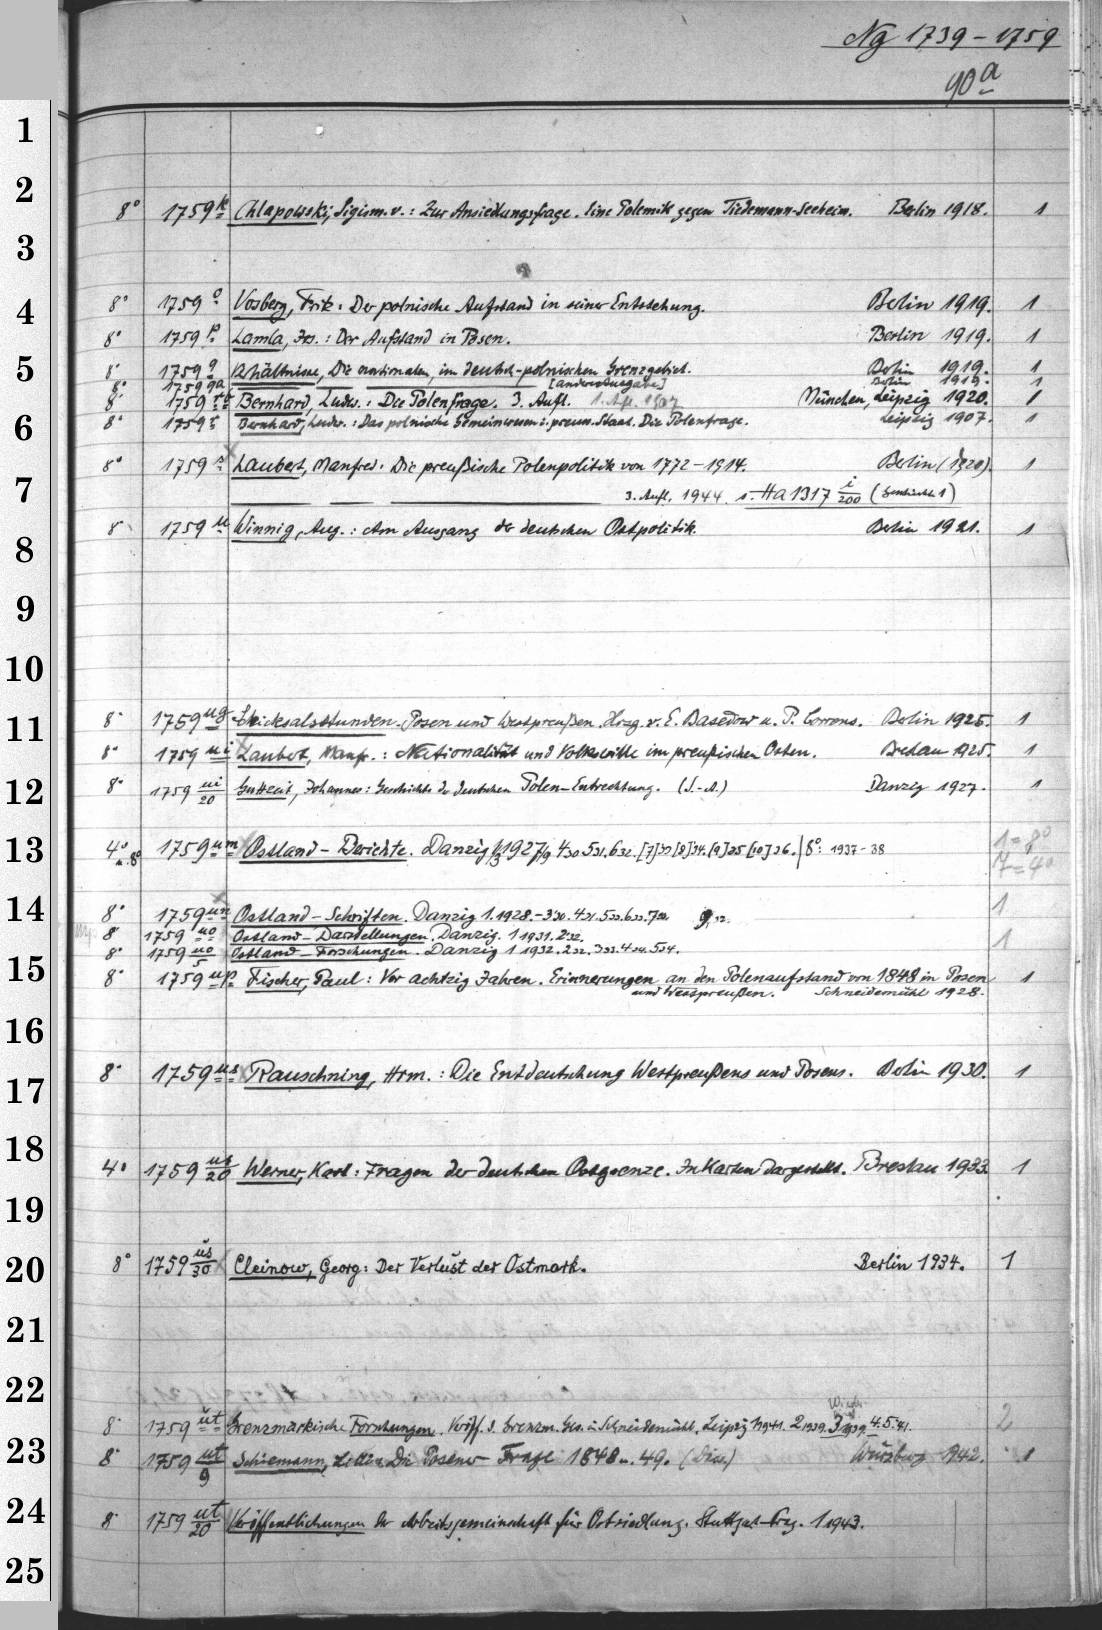 Ng 1739 - 1759
90 a
8° 1759 k Chlapowski, Sigism. v.: Zur Ansiedlungsfrage. Eine Polemik gegen Tiedemann-Seeheim. Berlin 1918. 1
8° 1759 o Vosberg, Fritz: Der polnische Aufstand in seiner Entstehung. Berlin 1919. 1
8° 1759 p Lamla, Frs.: Der Aufstand in Posen. Berlin 1919. 1
8° 1759 q Verhältnisse, Die nationalen, im deutsch-polnischen Grenzgebiet. Berlin 1919. 1
8° 1759 qa [andere Ausgabe] Berlin 1919. 1
8° 1759 Bernhard, Ludw.: Die Polenfrage. 3. Aufl. 1. Aufl. 1907 München, Leipzig 1920. 1
8° 1759 r Bernhard, Ludw.: Das polnische Gemeinwesen i. preuss. Staat. Die Polenfrage. Leipzig 1907. 1
8° 1759 s Laubert, Manfred: Die preußische Polenpolitik von 1772-1914. Berlin (1920). 1
3. Aufl. 1944 s. Ha 1317 i/200
8° 1759 u Winnig, Aug.: Am Ausgang der deutschen Ostpolitik. Berlin 1921. 1
8° 1759 ug Schicksalsstunden. Posen und Westpreußen. Hrzg. v. E. Basedow u. P. Correns. Berlin 1925. 1
8° 1759 ui Laubert, Manfr.: Nationalität und Volkswille im preußischen Osten. Breslau 1925. 1
8° 1759 ui/20 Gutzeit, Johannes: Geschichte der deutschen Polen-Entrechtung. (S.-A.) Danzig 1927. 1
4° u. 8° 1759 um Ostland-Berichte. Danzig 1/3 1927/9 4 30 5 31. 6 32. [7] 33 [8] 34. [9] 35 [10] 36. | 8°: 1937-38 1 = 8°
7 = 4°
8° 1759 un Ostland-Schriften. Danzig 1. 1928.-3 30. 4 31. 5 32. 6 33. 7 1
8° 1759 uo Ostland-Darstellungen. Danzig. 1 1931. 2 32. 1
8° 1759 uo/5 Ostland-Forschungen. Danzig 1 1932. 2 32. 3 33. 4 34. 5 34.
8° 1759 up Fischer, Paul: Vor achtzig Jahren. Erinnerungen an den Polenaufstand von 1848 in Posen 1
und Westpreußen. Schneidemühl 1928.
8° 1759 us Rauschning, Hrm.: Die Entdeutschung Westpreußens und Posens. Berlin 1930. 1
4° 1759 us/20 Werner, Karl: Fragen der deutschen Ostgrenze. In Karten dargestellt. Breslau 1933. 1
8° 1759 us/30 Cleinow, Georg: Der Verlust der Ostmark. Berlin 1934. 1
8° 1759 ut Grenzmärkische Forschungen. Veröff. d. Grenzm. Ges. i. Schneidemühl. Leipzig 1 1941. 2 1939. 3 1939. 4. 5. 41. 2
8° 1759 ut/9 Schiemann, Die Posener Frage 1848 u. 49. (Diss.) Würzburg 1942. 1
8° 1759 ut/20 Veröffentlichungen der Arbeitsgemeinschaft für Ostsiedlung. Stuttgart 1 1943.
1
2
3
4
5
6
7
8
9
10
11
12
13
14
15
16
17
18
19
20
21
22
23
24
25